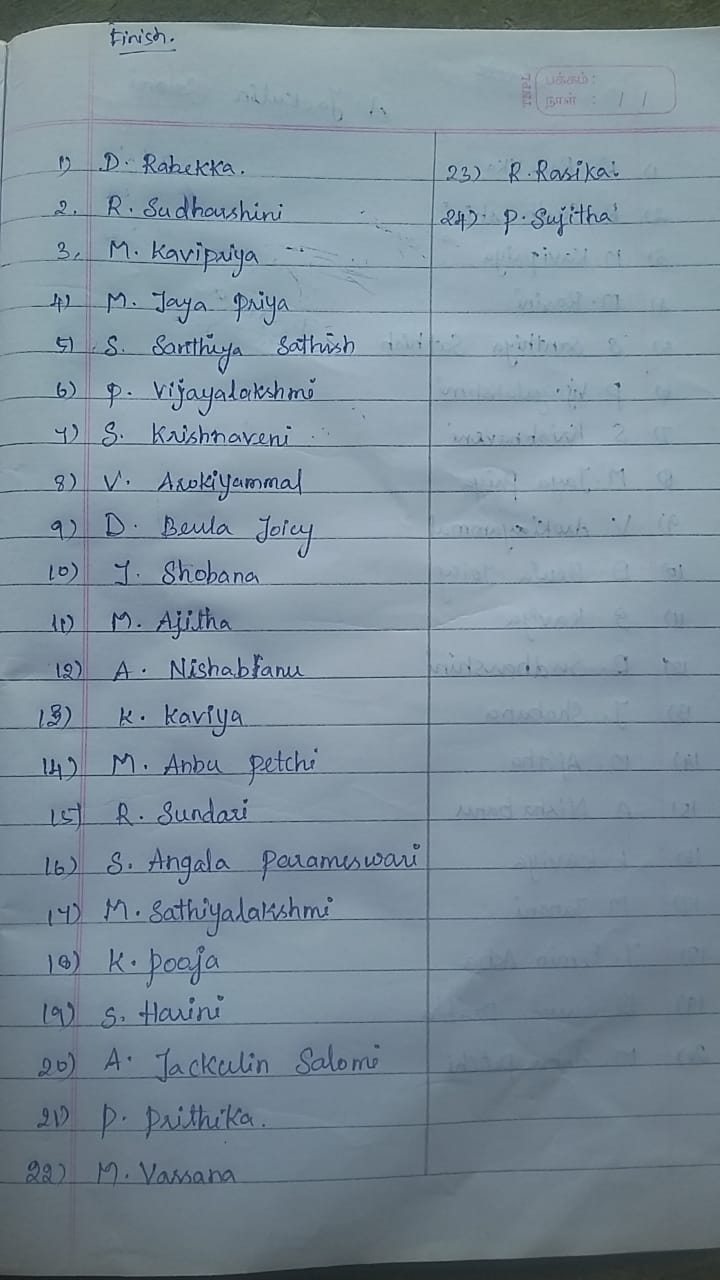 Finish.
TNPL
பக்கம் :
நாள் : / /
1) D. Rabekka.
2. R. Sudharshini
3. M. Kavipriya
4) M. Jaya Priya
5) S. Santhiya Sathish
6) P. Vijayalakshmi
7) S. Krishnaveni
8) V. Arokiyammal
9) D. Beula Joicy
10) J. Shobana
11) M. Ajitha
12) A. Nishabanu
13) K. Kaviya
14) M. Anbu Petchi
15) R. Sundari
16) S. Angala Parameswari
17) M. Sathiyalakshmi
18) K. Pooja
19) S. Harini
20) A. Jackulin Salomi
21) P. Prithika.
22) M. Vassana
23) R. Rasika
24) P. Sujitha